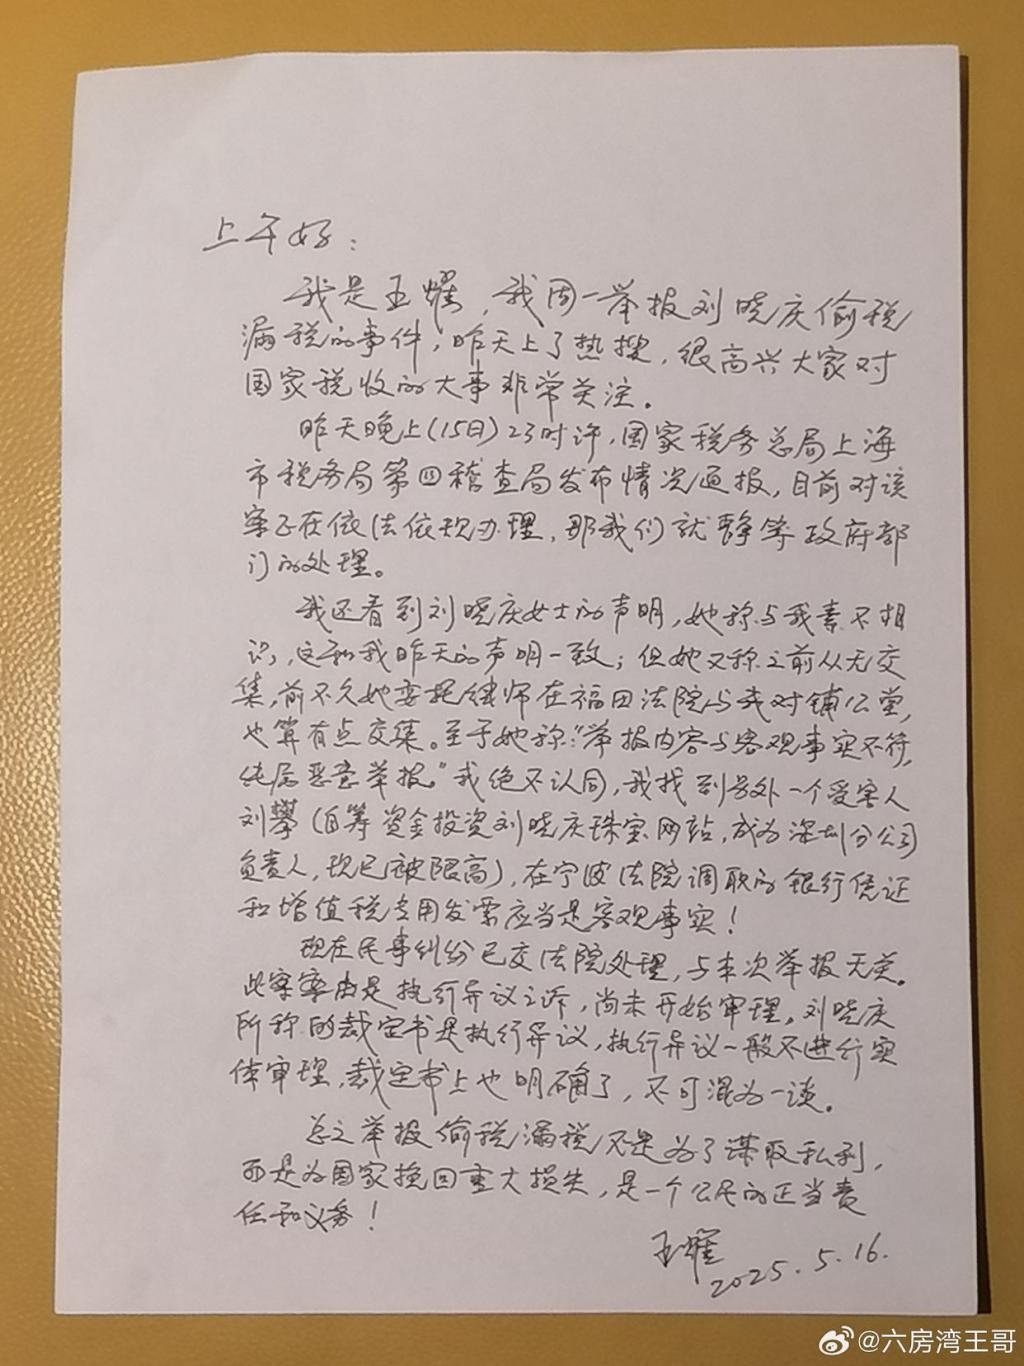 上午好:
我是王耀,我周一举报刘晓庆偷税
漏税的事件,昨天上了热搜,很高兴大家对
国家税收的大事非常关注。
昨天晚上(15日)23时许,国家税务总局上海
市税务局第四稽查局发布情况通报,目前对该
案正在依法依规办理,那我们就静等政府部
门的处理。
我还看到刘晓庆女士的声明,她称与我素不相
识,这和我昨天的声明一致;但她又称之前从无交
集,前不久她委托律师在福田法院与我对铺公堂,
也算有点交集。至于她称:“举报内容与客观事实不符,
纯属恶意举报。”我绝不认同,我找到另外一个受害人
刘攀(自筹资金投资刘晓庆珠宝网站,成为深圳分公司
负责人,现已被限高),在宁波法院调取的银行凭证
和增值税专用发票应当是客观事实!
现在民事纠纷已交法院处理,与本次举报无关。
此案案由是执行异议之诉,尚未开始审理,刘晓庆
所称的裁定书是执行异议,执行异议一般不进行实
体审理,裁定书上也明确了,不可混为一谈。
总之举报偷税漏税不是为了谋取私利,
而是为国家挽回重大损失,是一个公民的正当责
任和义务!
王耀
2025.5.16.
@六房湾王哥